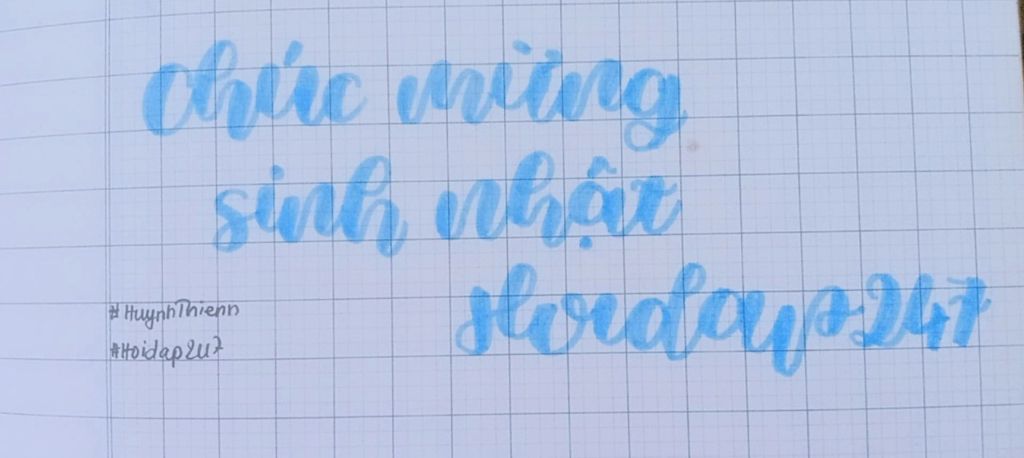 chúc mừng
sinh nhật
Hoidap247
#HuynhThienn
#Hoidap247